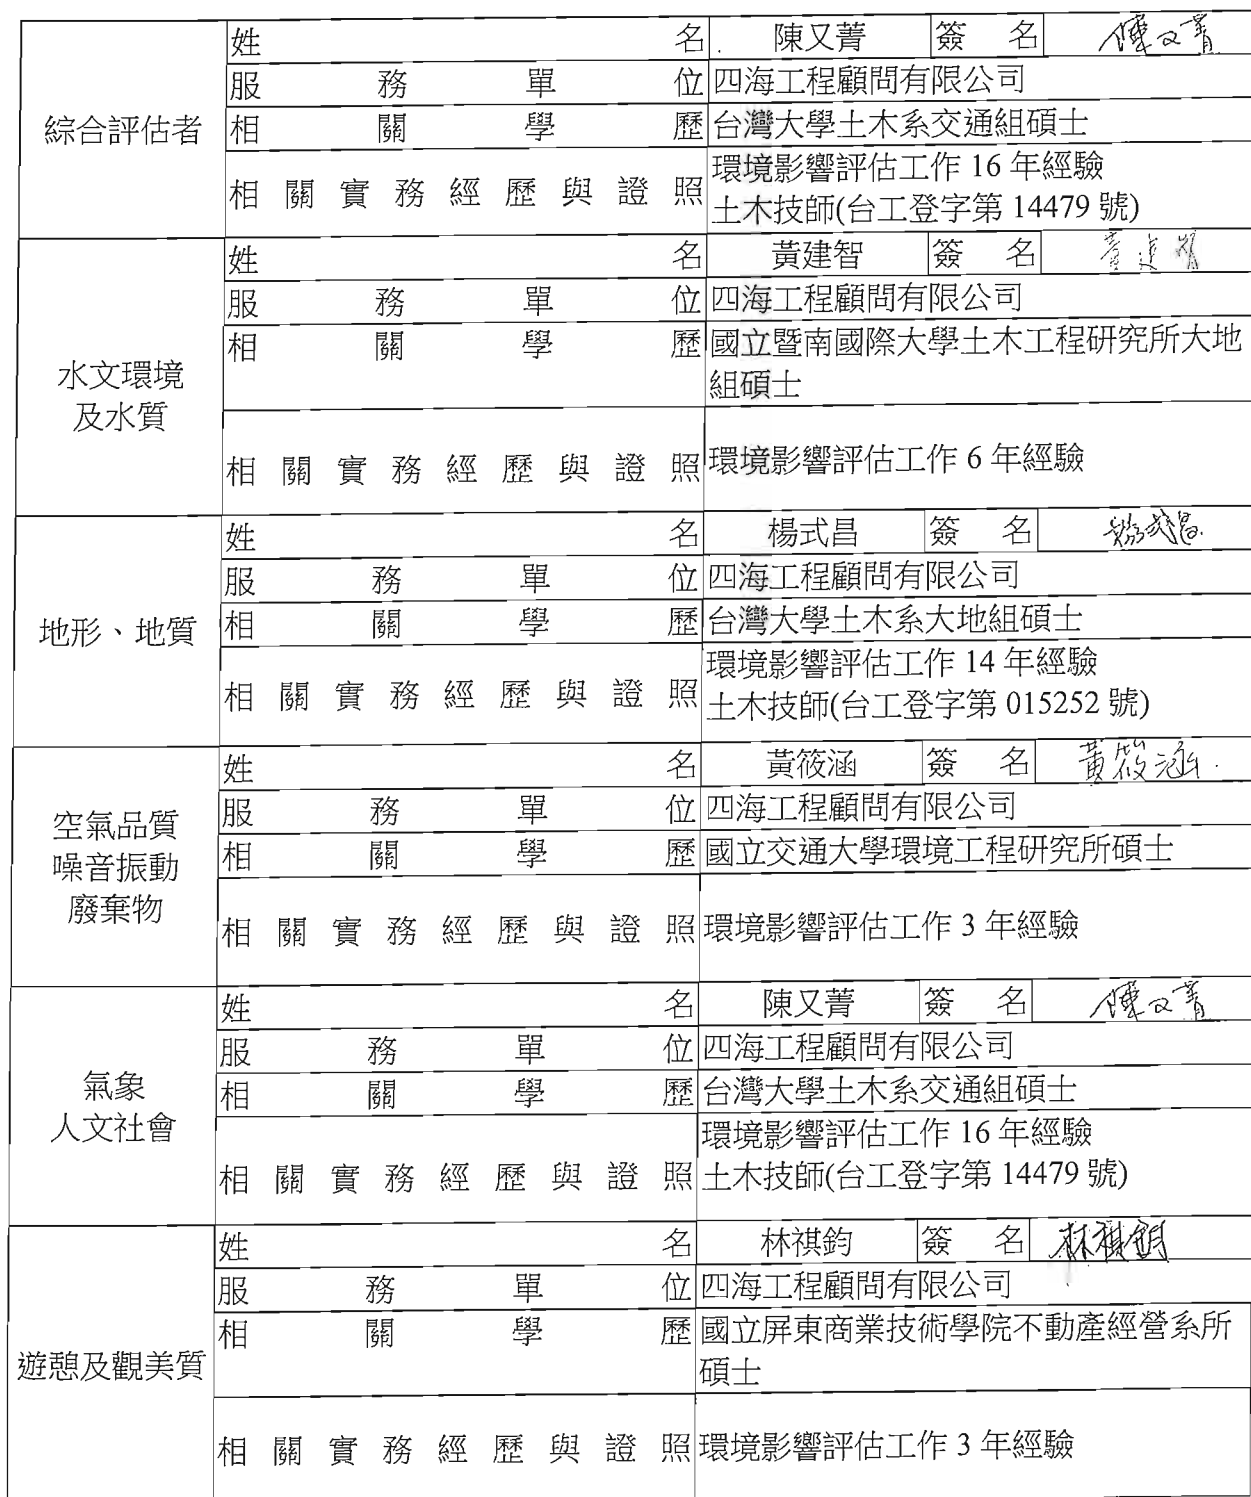 綜合評估者
姓名 陳又菁 簽名 陳又菁
服務單位 四海工程顧問有限公司
相關學歷 台灣大學土木系交通組碩士
相關實務經歷與證照 環境影響評估工作 16 年經驗
土木技師(台工登字第 14479 號)
水文環境
及水質
姓名 黃建智 簽名 黃建智
服務單位 四海工程顧問有限公司
相關學歷 國立暨南國際大學土木工程研究所大地
組碩士
相關實務經歷與證照 環境影響評估工作 6 年經驗
地形、地質
姓名 楊式昌 簽名 楊式昌
服務單位 四海工程顧問有限公司
相關學歷 台灣大學土木系大地組碩士
相關實務經歷與證照 環境影響評估工作 14 年經驗
土木技師(台工登字第 015252 號)
空氣品質
噪音振動
廢棄物
姓名 黃筱涵 簽名 黃筱涵
服務單位 四海工程顧問有限公司
相關學歷 國立交通大學環境工程研究所碩士
相關實務經歷與證照 環境影響評估工作 3 年經驗
氣象
人文社會
姓名 陳又菁 簽名 陳又菁
服務單位 四海工程顧問有限公司
相關學歷 台灣大學土木系交通組碩士
相關實務經歷與證照 環境影響評估工作 16 年經驗
土木技師(台工登字第 14479 號)
遊憩及觀美質
姓名 林祺鈞 簽名 林祺鈞
服務單位 四海工程顧問有限公司
相關學歷 國立屏東商業技術學院不動產經營系所
碩士
相關實務經歷與證照 環境影響評估工作 3 年經驗